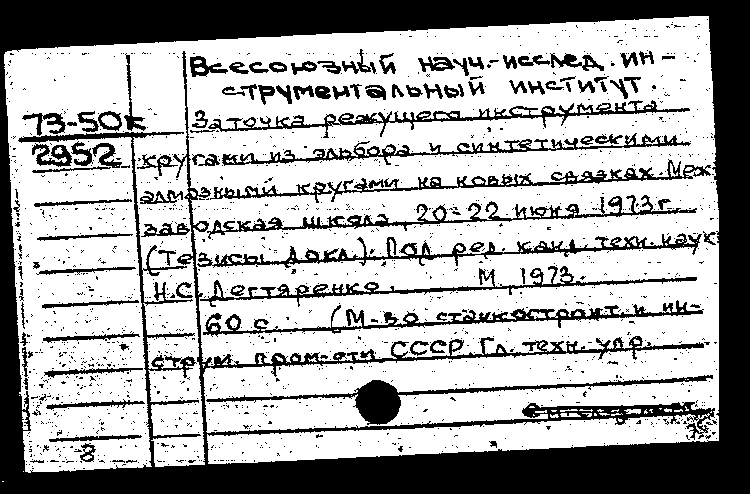 Всесоюзный науч.-исслед. ин-
струментальный институт.
73-50к Заточка режущего инструмента
2952 кругами из эльбора и синтетическими
алмазными кругами на новых связках. Меж
заводская школа, 20-22 июня 1973г.
(Тезисы докл.). Под ред. канд. техн. наук
Н.С. Дегтяренко. М. 1973.
60 с. (М-во станкостроит. и ин-
струм. пром-сти СССР. Гл. техн. упр.
См. след. карт.
8